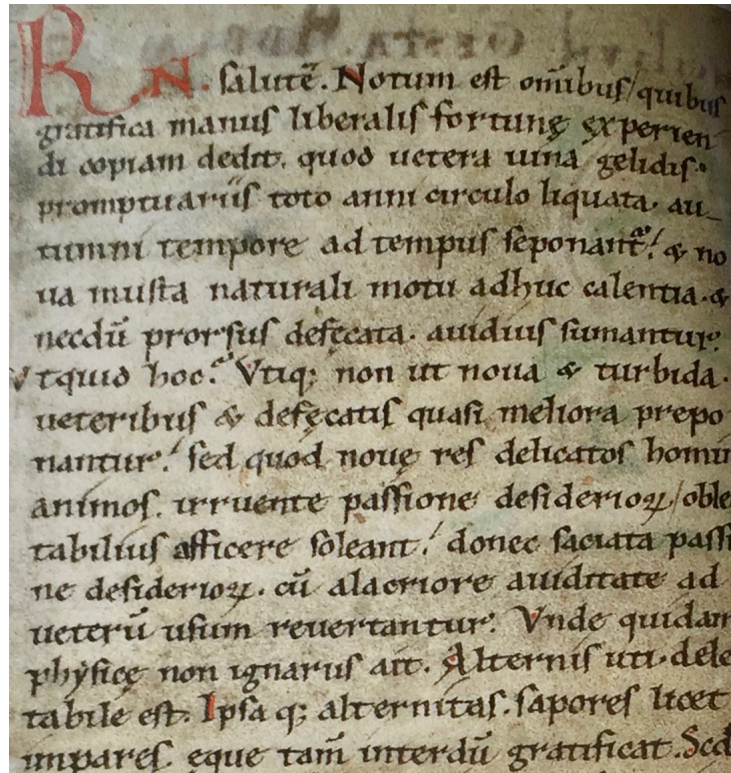 R. N. salutē. Notum est om̄ibus/ quibus
gratifica manus liberalis fortunę ęxperien
di copiam dedit. quod uetera uina gelidis.
promptuariis toto anni circulo liquata. au_
tumni tempore ad tempus seponant᷑! & no
ua musta naturali motu adhuc calentia. &
necdū prorsus defęcata. auidius sumantur?
Vtquid hoc? Vtiq; non ut noua & turbida.
ueteribus & defęcatis quasi meliora prepo
nantur! sed quod nouę res delicatos homin
animos. irruente passione desiderioꝝ/ oble
tabilius afficere soleant! donec saciata passi
ne desiderioꝝ. cū alacriore auiditate ad
ueterū usum reuertantur. Vnde quidam
physicę non ignarus ait. Alternis uti. dele
tabile est. Ipsa q; alternitas. sapores licet
impares. eque tam̄ interdū gratificat. Sed